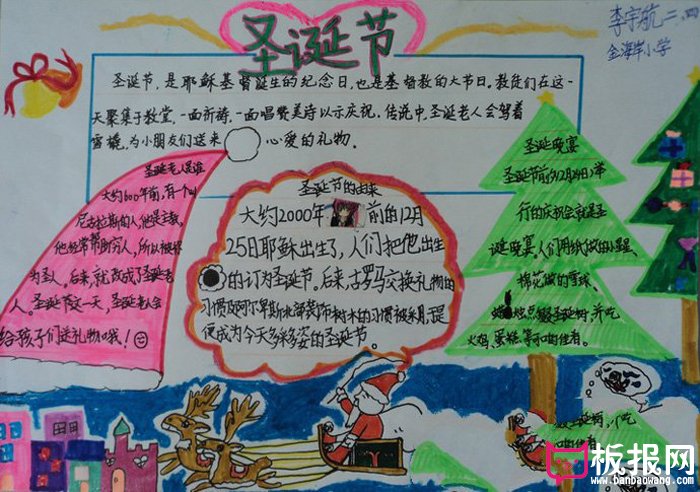 圣诞节
李宇航 二.四
金海岸小学
圣诞节,是耶稣基督诞生的纪念日,也是基督教的大节日。教徒们在这一
天聚集于教堂,一面祈祷,一面唱赞美诗以示庆祝。传说中,圣诞老人会驾着
雪橇,为小朋友们送来心爱的礼物。
圣诞老人是谁
大约1600年前,有一个叫
尼古拉斯的人,他是主教,
他经常帮助穷人,所以被称
为圣人。后来,就改成了圣诞老
人。圣诞节这一天,圣诞老人会
给孩子们送礼物哦!
圣诞节的由来
大约2000年前的12月
25日耶稣出生了,人们把他出生
的订为圣诞节。后来,古罗马交换礼物的
习惯及阿尔卑斯北部装饰树木的习惯被采用,于是
便成为今天多采多姿的圣诞节。
圣诞晚宴
圣诞节前夕12月24日举
行的庆祝会就是圣
诞晚宴,人们用纸做的小星星、
棉花做的雪球、
点缀圣诞树,并吃
火鸡、蛋糕等和
圣诞树,并吃
板报网
www.banbaowang.com